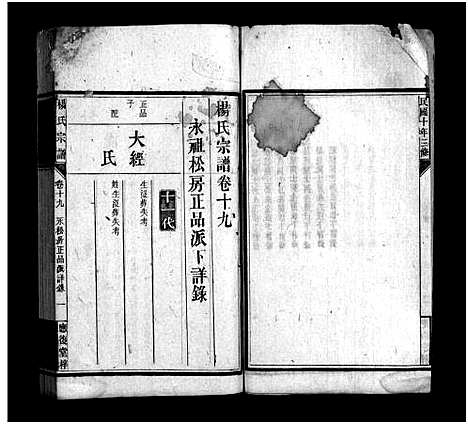 民國十年三修
楊氏宗譜卷十九
永祉松房正品派下詳錄
十一代
正品
子
大經
生歿葬失考
配
氏
姓生歿葬失考
楊氏宗譜
卷十九
松房正品派詳錄
一
應後堂梓